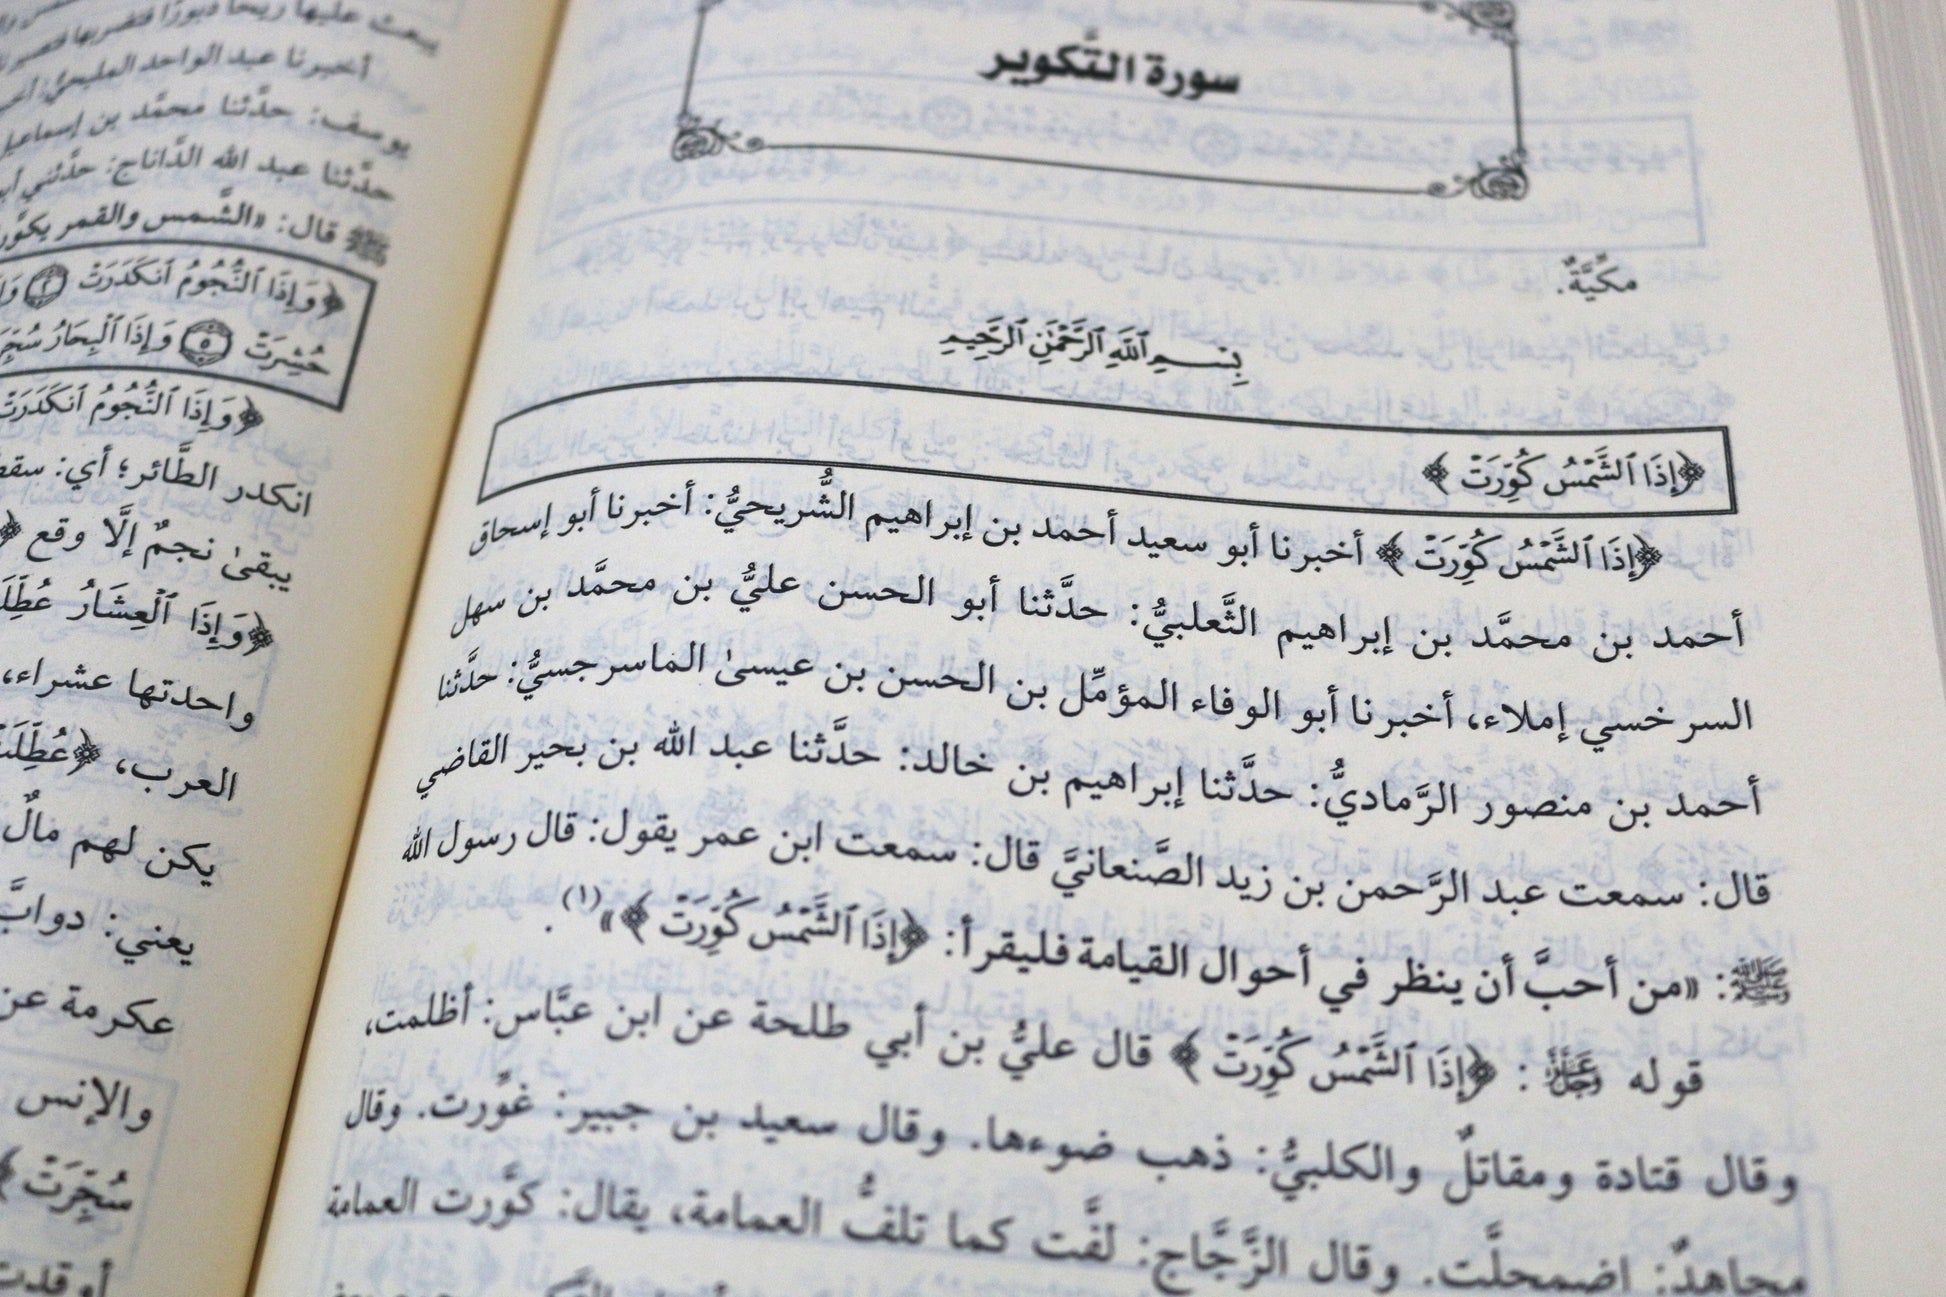 سورة التَّكوير
مكيَّةٌ.
بِسْمِ ٱللَّهِ ٱلرَّحْمَٰنِ ٱلرَّحِيمِ
﴿إِذَا ٱلشَّمْسُ كُوِّرَتْ﴾
﴿إِذَا ٱلشَّمْسُ كُوِّرَتْ﴾ أخبرنا أبو سعيد أحمد بن إبراهيم الشُّريحيُّ: أخبرنا أبو إسحاق
أحمد بن محمَّد بن إبراهيم الثَّعلبيُّ: حدَّثنا أبو الحسن عليُّ بن محمَّد بن سهل
السرخسي إملاء، أخبرنا أبو الوفاء المؤمِّل بن الحسن بن عيسىٰ الماسرجسيُّ: حدَّثنا
أحمد بن منصور الرَّماديُّ: حدَّثنا إبراهيم بن خالد: حدَّثنا عبد الله بن بحير القاضي
قال: سمعت عبد الرَّحمن بن زيد الصَّنعانيَّ قال: سمعت ابن عمر يقول: قال رسول الله
ﷺ: «من أحبَّ أن ينظر في أحوال القيامة فليقرأ: ﴿إِذَا ٱلشَّمْسُ كُوِّرَتْ﴾»(١).
قوله عَزَّوَجَلَّ: ﴿إِذَا ٱلشَّمْسُ كُوِّرَتْ﴾ قال عليُّ بن أبي طلحة عن ابن عبَّاس: أظلمت،
وقال قتادة ومقاتلٌ والكلبيُّ: ذهب ضوءها. وقال سعيد بن جبير: غوِّرت. وقال
مجاهدٌ: اضمحلَّت. وقال الزَّجَّاج: لفَّت كما تلفُّ العمامة، يقال: كوَّرت العمامة
يبعث عليها ريحًا دبورًا فتضربها
أخبرنا عبد الواحد المليحيُّ:
يوسف: حدَّثنا محمَّد بن إسماعيل
حدَّثنا عبد الله الدَّاناج: حدَّثني
ﷺ قال: «الشَّمس والقمر
﴿وَإِذَا ٱلنُّجُومُ ٱنكَدَرَتْ ٢
حُشِرَتْ ٥ وَإِذَا ٱلْبِحَارُ
﴿وَإِذَا ٱلنُّجُومُ ٱنكَدَرَتْ
انكدر الطَّائر؛ أي:
يبقىٰ نجمٌ إلَّا وقع
﴿وَإِذَا ٱلْعِشَارُ
واحدتها عشراء،
العرب، ﴿عُطِّلَتْ
يكن لهم مالٌ
يعني: دوابَّ
عكرمة عن
والإنس
سُجِّرَتْ﴾
أوقدت